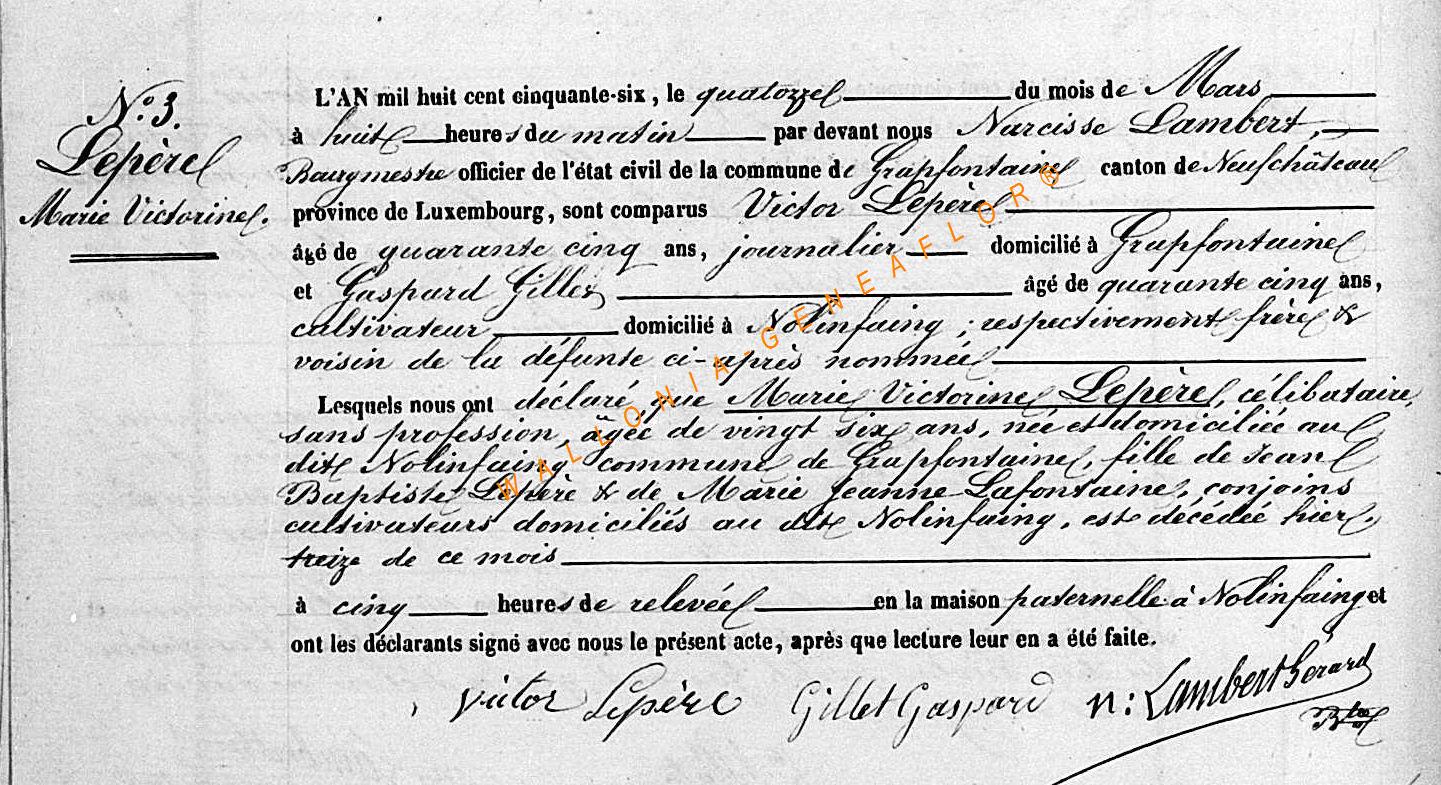 N.° 3.
Lepère
Marie Victorine.
L'AN mil huit cent cinquante-six, le quatorze du mois de Mars
à huit heures du matin par devant nous Narcisse Lambert,
Bourgmestre officier de l'état civil de la commune de Grapfontaine canton de Neufchâteau
province de Luxembourg, sont comparus Victor Lepère
âgé de quarante cinq ans, journalier domicilié à Grapfontaine
et Gaspard Gillet âgé de quarante cinq ans,
cultivateur domicilié à Nolinfaing ; respectivement frère &
voisin de la défunte ci-après nommée
Lesquels nous ont déclaré, que Marie Victorine Lepère, célibataire,
sans profession, âgée de vingt six ans, née et domiciliée au
dit Nolinfaing commune de Grapfontaine, fille de Jean
Baptiste Lepère & de Marie Jeanne Lafontaine, conjoins
cultivateurs domiciliés au dit Nolinfaing, est décédée hier,
treize de ce mois
à cinq heures de relevée en la maison paternelle à Nolinfaing et
ont les déclarants signé avec nous le présent acte, après que lecture leur en a été faite.
Victor Lepère Gillet Gaspard n: Lambert Gérard
WALLONIA-GENEAFLOR®